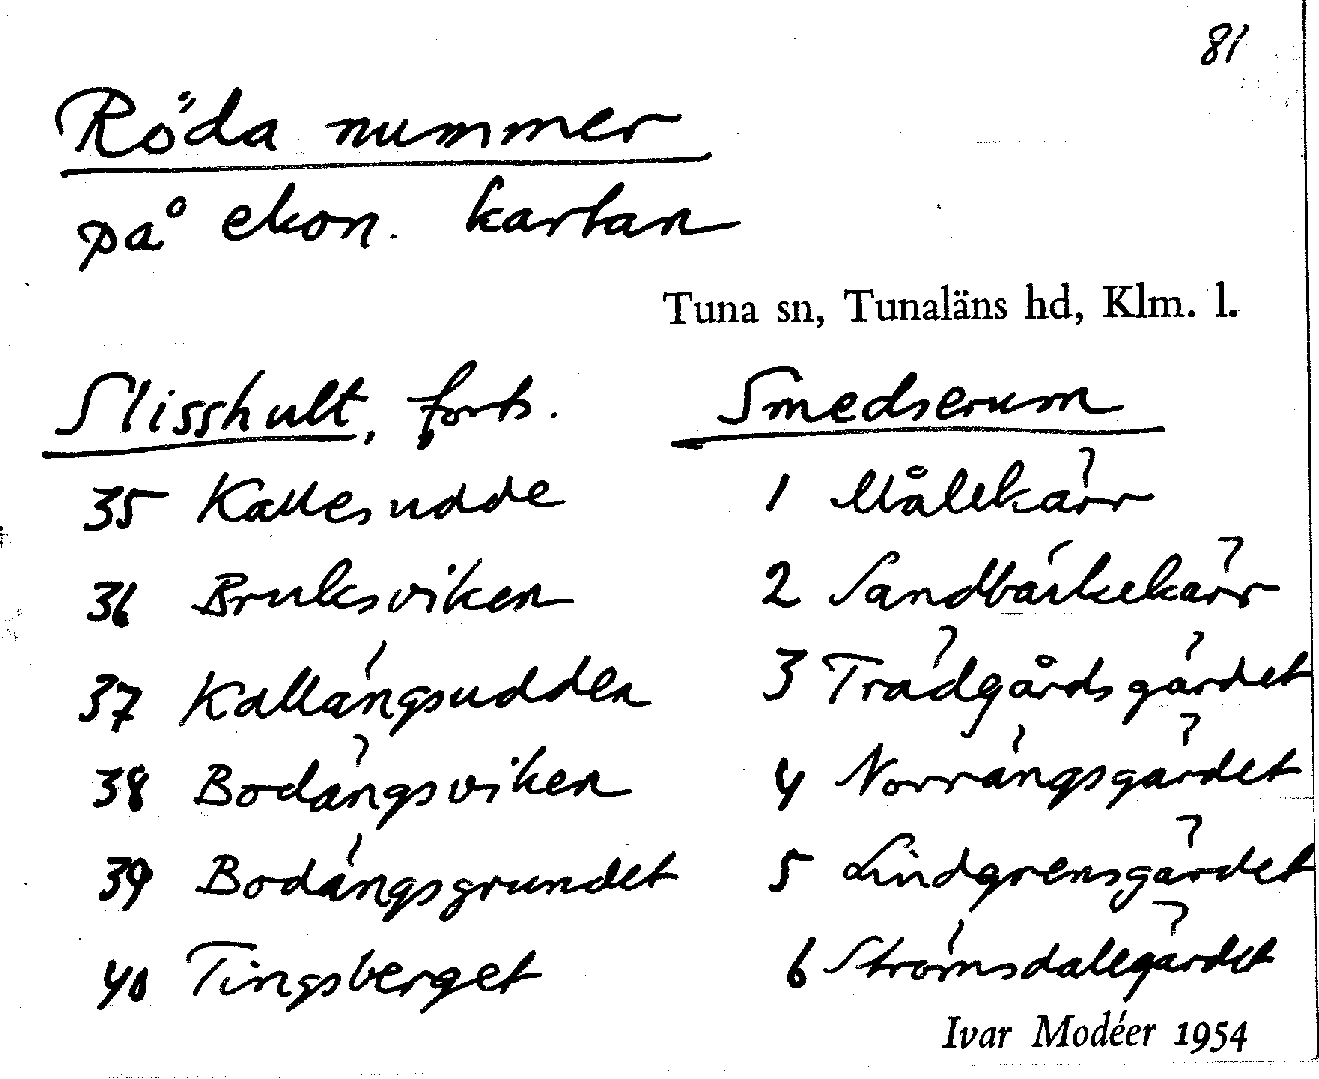 81
Röda nummer
på ekon. kartan
Tuna sn, Tunaläns hd, Klm. l.
Slisshult, forts.
35 Kallesudde
36 Bruksviken
37 Kallängsudden
38 Bodängsviken
39 Bodängsgrundet
40 Tingsberget
Smedserum
1 Målekärr
2 Sandbäckekärr
3 Trädgårdsgärdet
4 Norrängsgärdet
5 Lindgrensgärdet
6 Strömsdalsgärdet
Ivar Modéer 1954